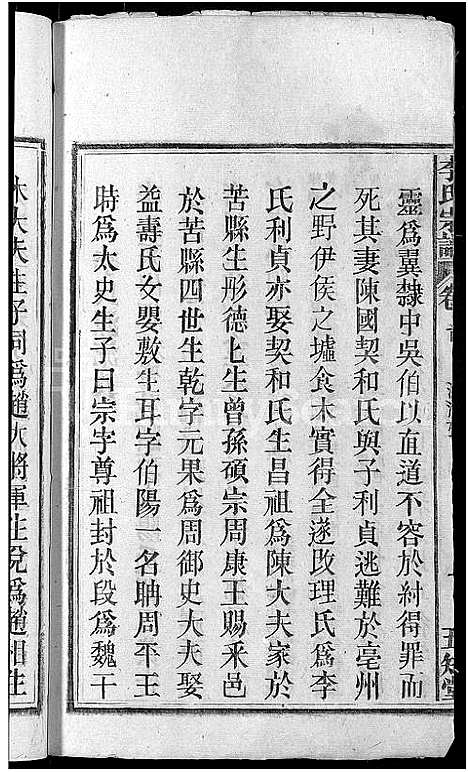 李氏宗譜 卷首
五知堂
靈爲翼隸中吳伯以直道不容於紂得罪而
死其妻陳國契和氏與子利貞逃難於亳州
之野伊侯之墟食木實得全遂改理氏爲李
氏利貞亦娶契和氏生昌祖爲陳大夫家於
苦縣生彤德彤德生曾孫碩宗周康王賜采邑
於苦縣四世生乾字元果爲周御史大夫娶
益壽氏女嬰敷生耳字伯陽一名聃周平王
時爲太史生子曰宗字尊祖封於段爲魏干
木大夫生子同爲趙大將軍生兌爲趙相生